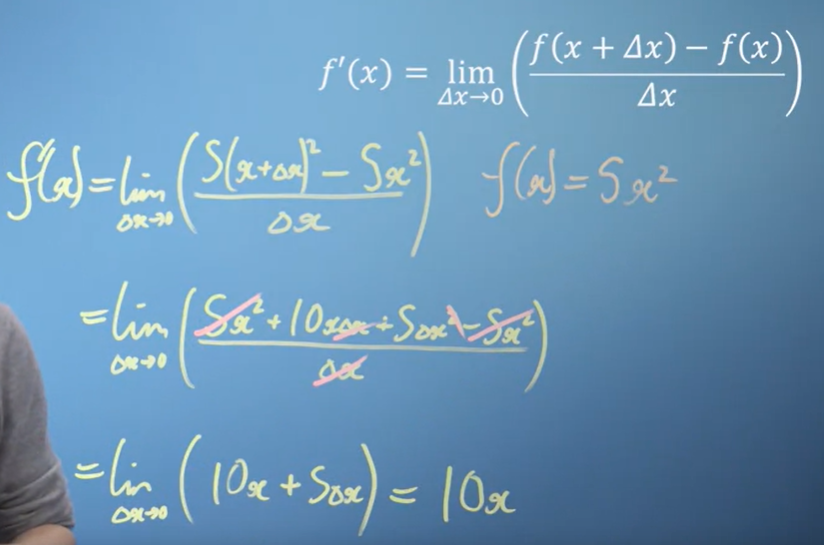 f'(x) = lim Δx→0 ( (f(x + Δx) − f(x)) / Δx )
f'(x) = lim Δx→0 ( (5(x+Δx)² − 5x²) / Δx )   f(x) = 5x²
= lim Δx→0 ( (5x² + 10xΔx + 5Δx² − 5x²) / Δx )
= lim Δx→0 ( 10x + 5Δx ) = 10x